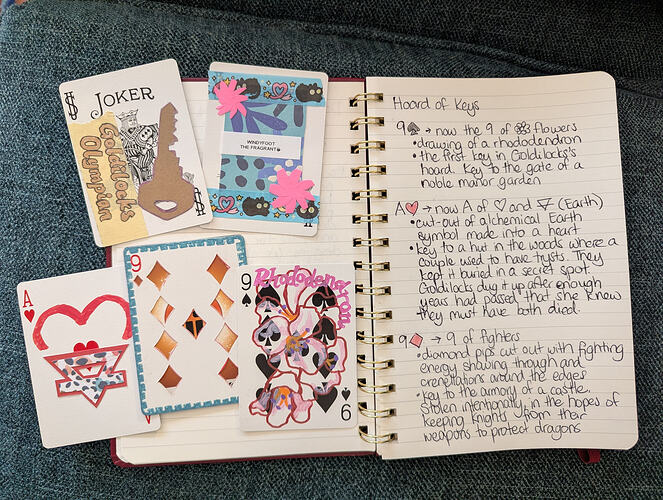 JOKER
Goldilocks
Olympian
WINDYFOOT
THE FRAGRANT
A
9
9
Rhododendron
6
Hoard of Keys
9♠ → now the 9 of flowers
• drawing of a rhododendron
• the first key in Goldilocks's
hoard. Key to the gate of a
noble manor garden
A♥ → now A of ♡ and 🜃 (Earth)
• cut-out of alchemical Earth
symbol made into a heart
• key to a hut in the woods where a
couple used to have trysts. They
kept it buried in a secret spot.
Goldilocks dug it up after enough
years had passed that she knew
they must have both died.
9♦ → 9 of fighters
• diamond pips cut out with fighting
energy showing through and
crenellations around the edges
• key to the armory of a castle.
Stolen intentionally, in the hopes of
keeping knights from their
weapons to protect dragons